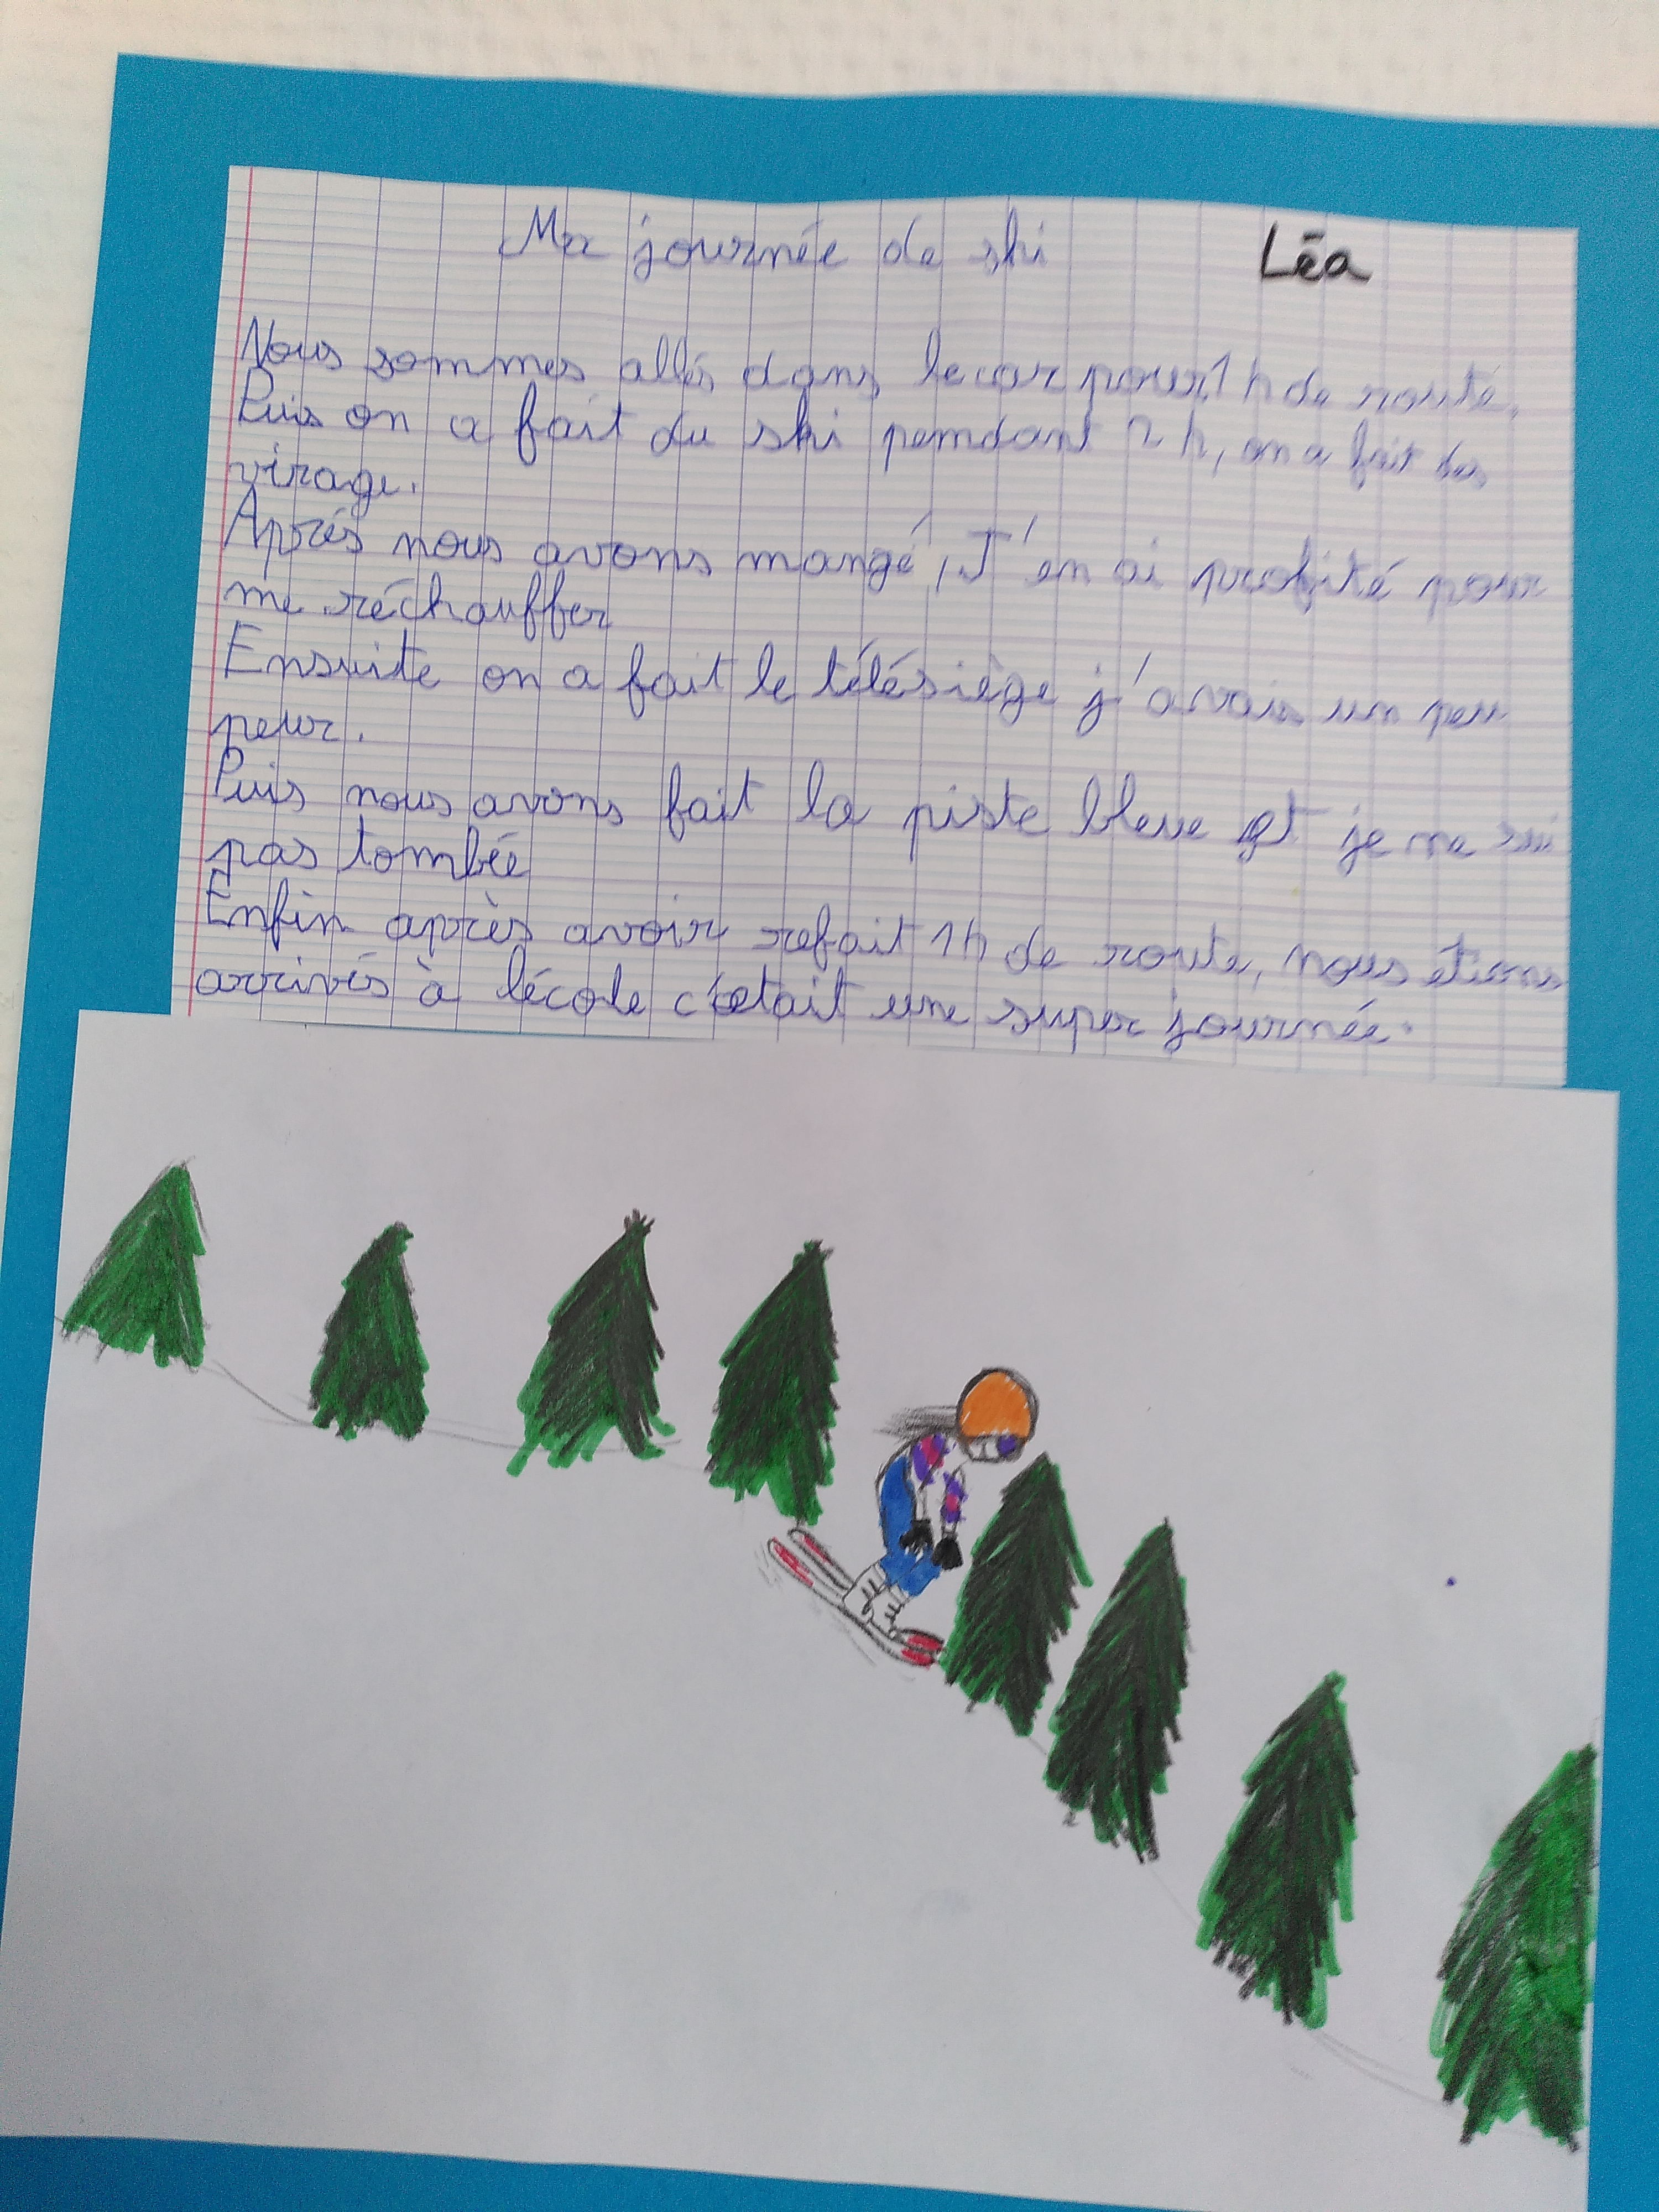 Ma journée de ski Léa
Nous sommes allés dans le car pour 1h de route.
Puis on a fait du ski pemdant 2h, on a fait des
virage.
Aprés nous avons mangé, J'en ai profité pour
me réchauffer
Ensuite on a fait le télésiège j'avais un peu
peur.
Puis nous avons fait la piste bleue et je me sui
pas tombée
Enfin après avoir refait 1h de route, nous étions
arrivés à lécole c'était une super journée.